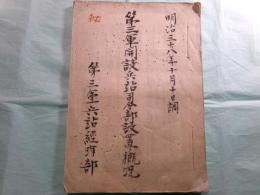 明治三十八年十月十日調
第三軍開設兵站司令部設置概況
第三軍兵站経理部